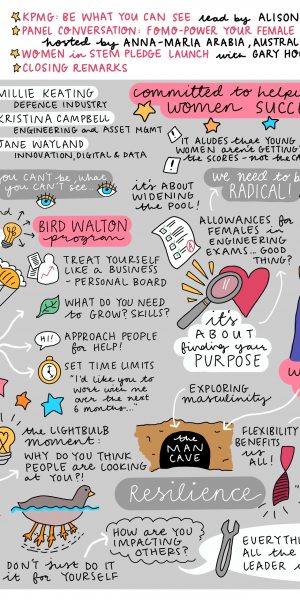 KPMG: BE WHAT YOU CAN SEE read by ALISON
PANEL CONVERSATION: FOMO-POWER YOUR FEMALE
hosted by ANNA-MARIA ARABIA, AUSTRAL
WOMEN in STEM PLEDGE LAUNCH with GARY HO
CLOSING REMARKS
MILLIE KEATING
DEFENCE INDUSTRY
KRISTINA CAMPBELL
ENGINEERING and ASSET MGMT
JANE WAYLAND
INNOVATION, DIGITAL & DATA
committed to helpi
WOMEN SUCC
IT ALUDES that YOUNG
WOMEN aren't GETTING
the SCORES - not the CA
you can't be what
you can't see...
it's ABOUT
WIDENING
the POOL!
we need to b
RADICAL!
BIRD WALTON
program
TREAT YOURSELF
LIKE a BUSINESS
- PERSONAL BOARD
WHAT DO YOU NEED
to GROW? SKILLS?
HI!
APPROACH PEOPLE
for HELP!
SET TIME LIMITS
"I'd like you to
work with me
over the next
6 months..."
ALLOWANCES for
FEMALES in
ENGINEERING
EXAMS... GOOD
THING?
it's
ABOUT
finding your
PURPOSE
EXPLORING
masculinity
the LIGHTBULB
moment:
WHY DO YOU THINK
PEOPLE are LOOKING
at YOU?!
the
MAN
CAVE
FLEXIBILITY
BENEFITS
us ALL!
Resilience
HOW are YOU
IMPACTING
OTHERS?
DON'T JUST DO IT
it for YOURSELF
EVERYTHI
ALL the
LEADER i